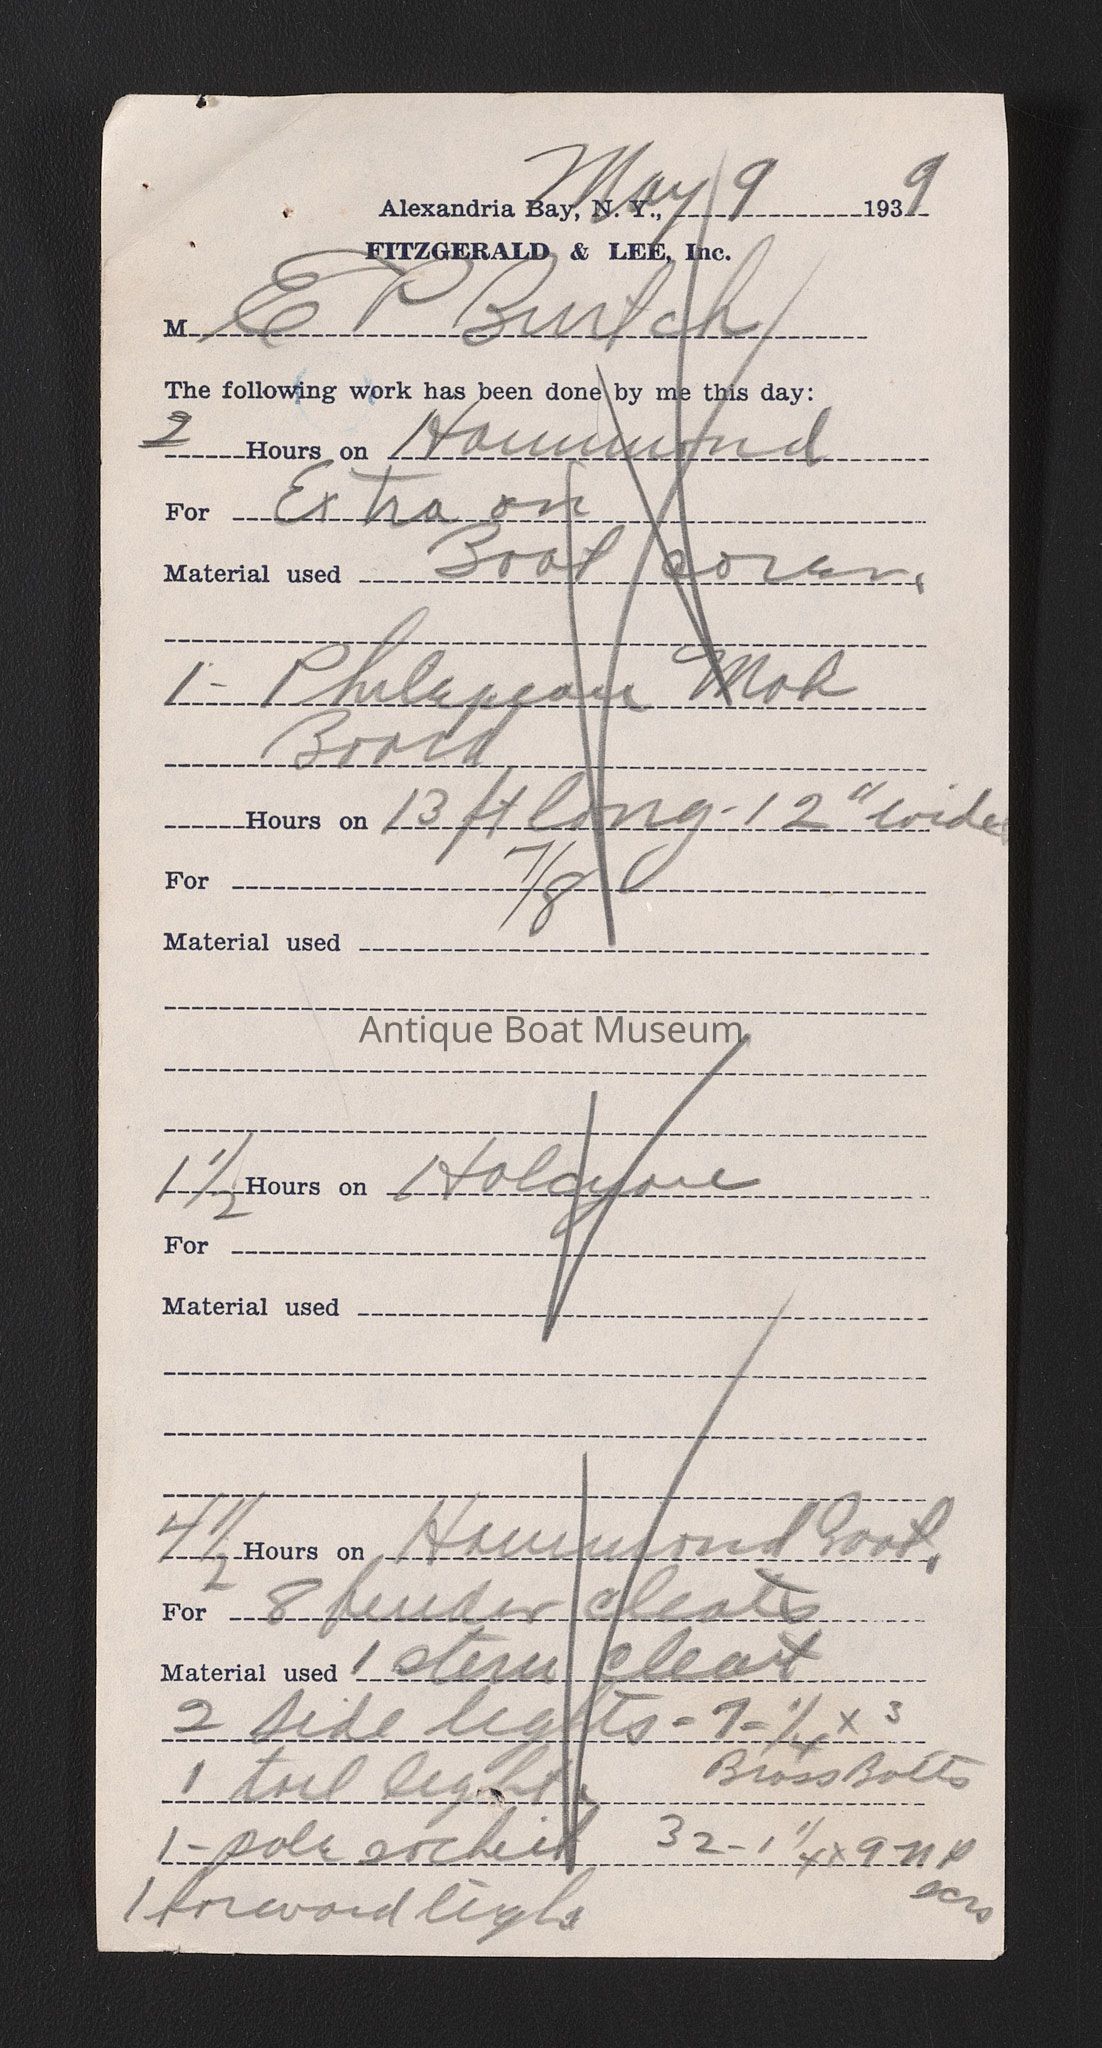 May 9 9
Alexandria Bay, N. Y., 193
FITZGERALD & LEE, Inc.
M E P Burtch
The following work has been done by me this day:
2 Hours on Hammond
For Extra on
Material used Boat cover.
1- Philepeane Moh
Board
Hours on 13 ft long - 12" wide
For 7/8
Material used
Antique Boat Museum
1 1/2 Hours on Halcyone
For
Material used
4 1/2 Hours on Hammond Boat.
For 8 fender cleats
Material used 1 stern cleat
2 side lights - 7 - 1/4 x 3
1 tail light Brass Bolts
1 - pole socket 32 - 1 1/4 x 9 NP
1 forward light scrs